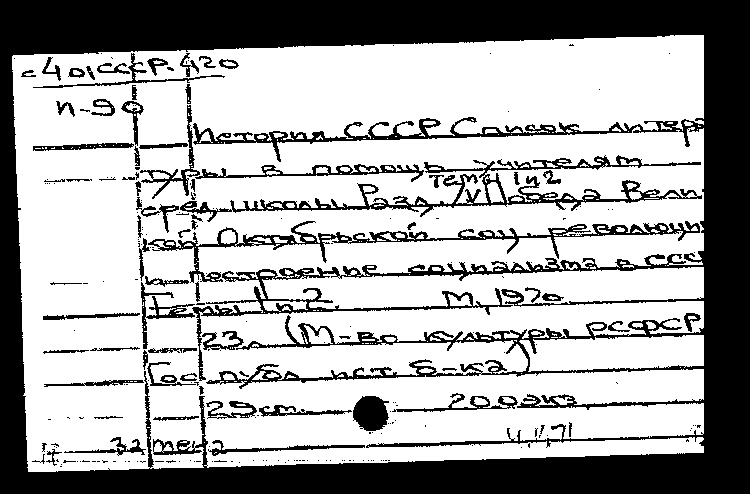 с401СССР.420
п-90
История СССР Список литера
туры в помощь учителям
темы 1и2
сред. школы. Разд. IV Победа Вели-
кой Октябрьской соц. революции
и построение социализма в СССР
Темы 1 и 2. М., 1970
23л (М-во культуры РСФСР.
Гос. публ. ист. б-ка)
29см. 200экз.
32 4.V.71